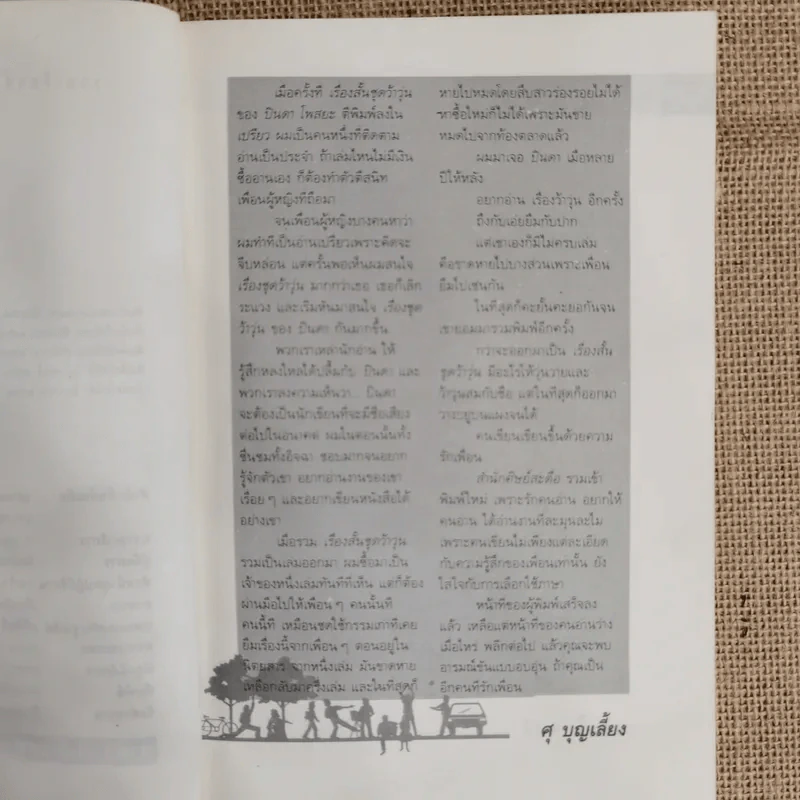 เมื่อครั้งที่ เรื่องสั้นชุดว้าวุ่น
ของ ปินดา โพสยะ ตีพิมพ์ลงใน
เปรียว ผมเป็นคนหนึ่งที่ติดตาม
อ่านเป็นประจำ ถ้าเล่มไหนไม่มีเงิน
ซื้ออ่านเอง ก็ต้องทำตัวตีสนิท
เพื่อนผู้หญิงที่ถือมา
จนเพื่อนผู้หญิงบางคนหาว่า
ผมทำทีเป็นอ่านเปรียวเพราะคิดจะ
จีบหล่อน แต่ครั้นพอเห็นผมสนใจ
เรื่องชุดว้าวุ่น มากกว่าเธอ เธอก็เลิก
ระแวง และเริ่มหันมาสนใจ เรื่องชุด
ว้าวุ่น ของ ปินดา กันมากขึ้น
พวกเราเหล่านักอ่าน ให้
รู้สึกหลงใหลได้ปลื้มกับ ปินดา และ
พวกเราลงความเห็นว่า... ปินดา
จะต้องเป็นนักเขียนที่จะมีชื่อเสียง
ต่อไปในอนาคต ผมในตอนนั้นทั้ง
ชื่นชมทั้งอิจฉา ชอบมากจนอยาก
รู้จักตัวเขา อยากอ่านงานของเขา
เรื่อยๆ และอยากเขียนหนังสือได้
อย่างเขา
เมื่อรวม เรื่องสั้นชุดว้าวุ่น
รวมเป็นเล่มออกมา ผมซื้อมาเป็น
เจ้าของหนึ่งเล่มทันทีที่เห็น แต่ก็ต้อง
ผ่านมือไปให้เพื่อนๆ คนนั้นที
คนนี้ที เหมือนชดใช้กรรมเก่าที่เคย
ยืมเรื่องนี้จากเพื่อนๆ ตอนอยู่ใน
นิตยสาร จากหนึ่งเล่ม มันขาดหาย
เหลือกลับมาครึ่งเล่ม และในที่สุดก็
หายไปหมดโดยสืบสาวร่องรอยไม่ได้
หาซื้อใหม่ก็ไม่ได้เพราะมันขาย
หมดไปจากท้องตลาดแล้ว
ผมมาเจอ ปินดา เมื่อหลาย
ปีให้หลัง
อยากอ่าน เรื่องว้าวุ่น อีกครั้ง
ถึงกับเอ่ยยืมกับปาก
แต่เขาเองก็มีไม่ครบเล่ม
คือขาดหายไปบางส่วนเพราะเพื่อน
ยืมไปเช่นกัน
ในที่สุดก็คะยั้นคะยอกันจน
เขายอมมารวมพิมพ์อีกครั้ง
กว่าจะออกมาเป็น เรื่องสั้น
ชุดว้าวุ่น มีอะไรให้วุ่นวายและ
ว้าวุ่นสมกับชื่อ แต่ในที่สุดก็ออกมา
วางอยู่บนแผงจนได้
คนเขียนเขียนขึ้นด้วยความ
รักเพื่อน
สำนักศิษย์สะดือ รวมเข้า
พิมพ์ใหม่ เพราะรักคนอ่าน อยากให้
คนอ่าน ได้อ่านงานที่ละมุนละไม
เพราะคนเขียนไม่เพียงแต่ละเอียด
กับความรู้สึกของเพื่อนเท่านั้น ยัง
ใส่ใจกับการเลือกใช้ภาษา
หน้าที่ของผู้พิมพ์เสร็จลง
แล้ว เหลือแต่หน้าที่ของคนอ่านว่าง
เมื่อไหร่ พลิกต่อไป แล้วคุณจะพบ
อารมณ์ขันแบบอบอุ่น ถ้าคุณเป็น
อีกคนที่รักเพื่อน
ศุ บุญเลี้ยง